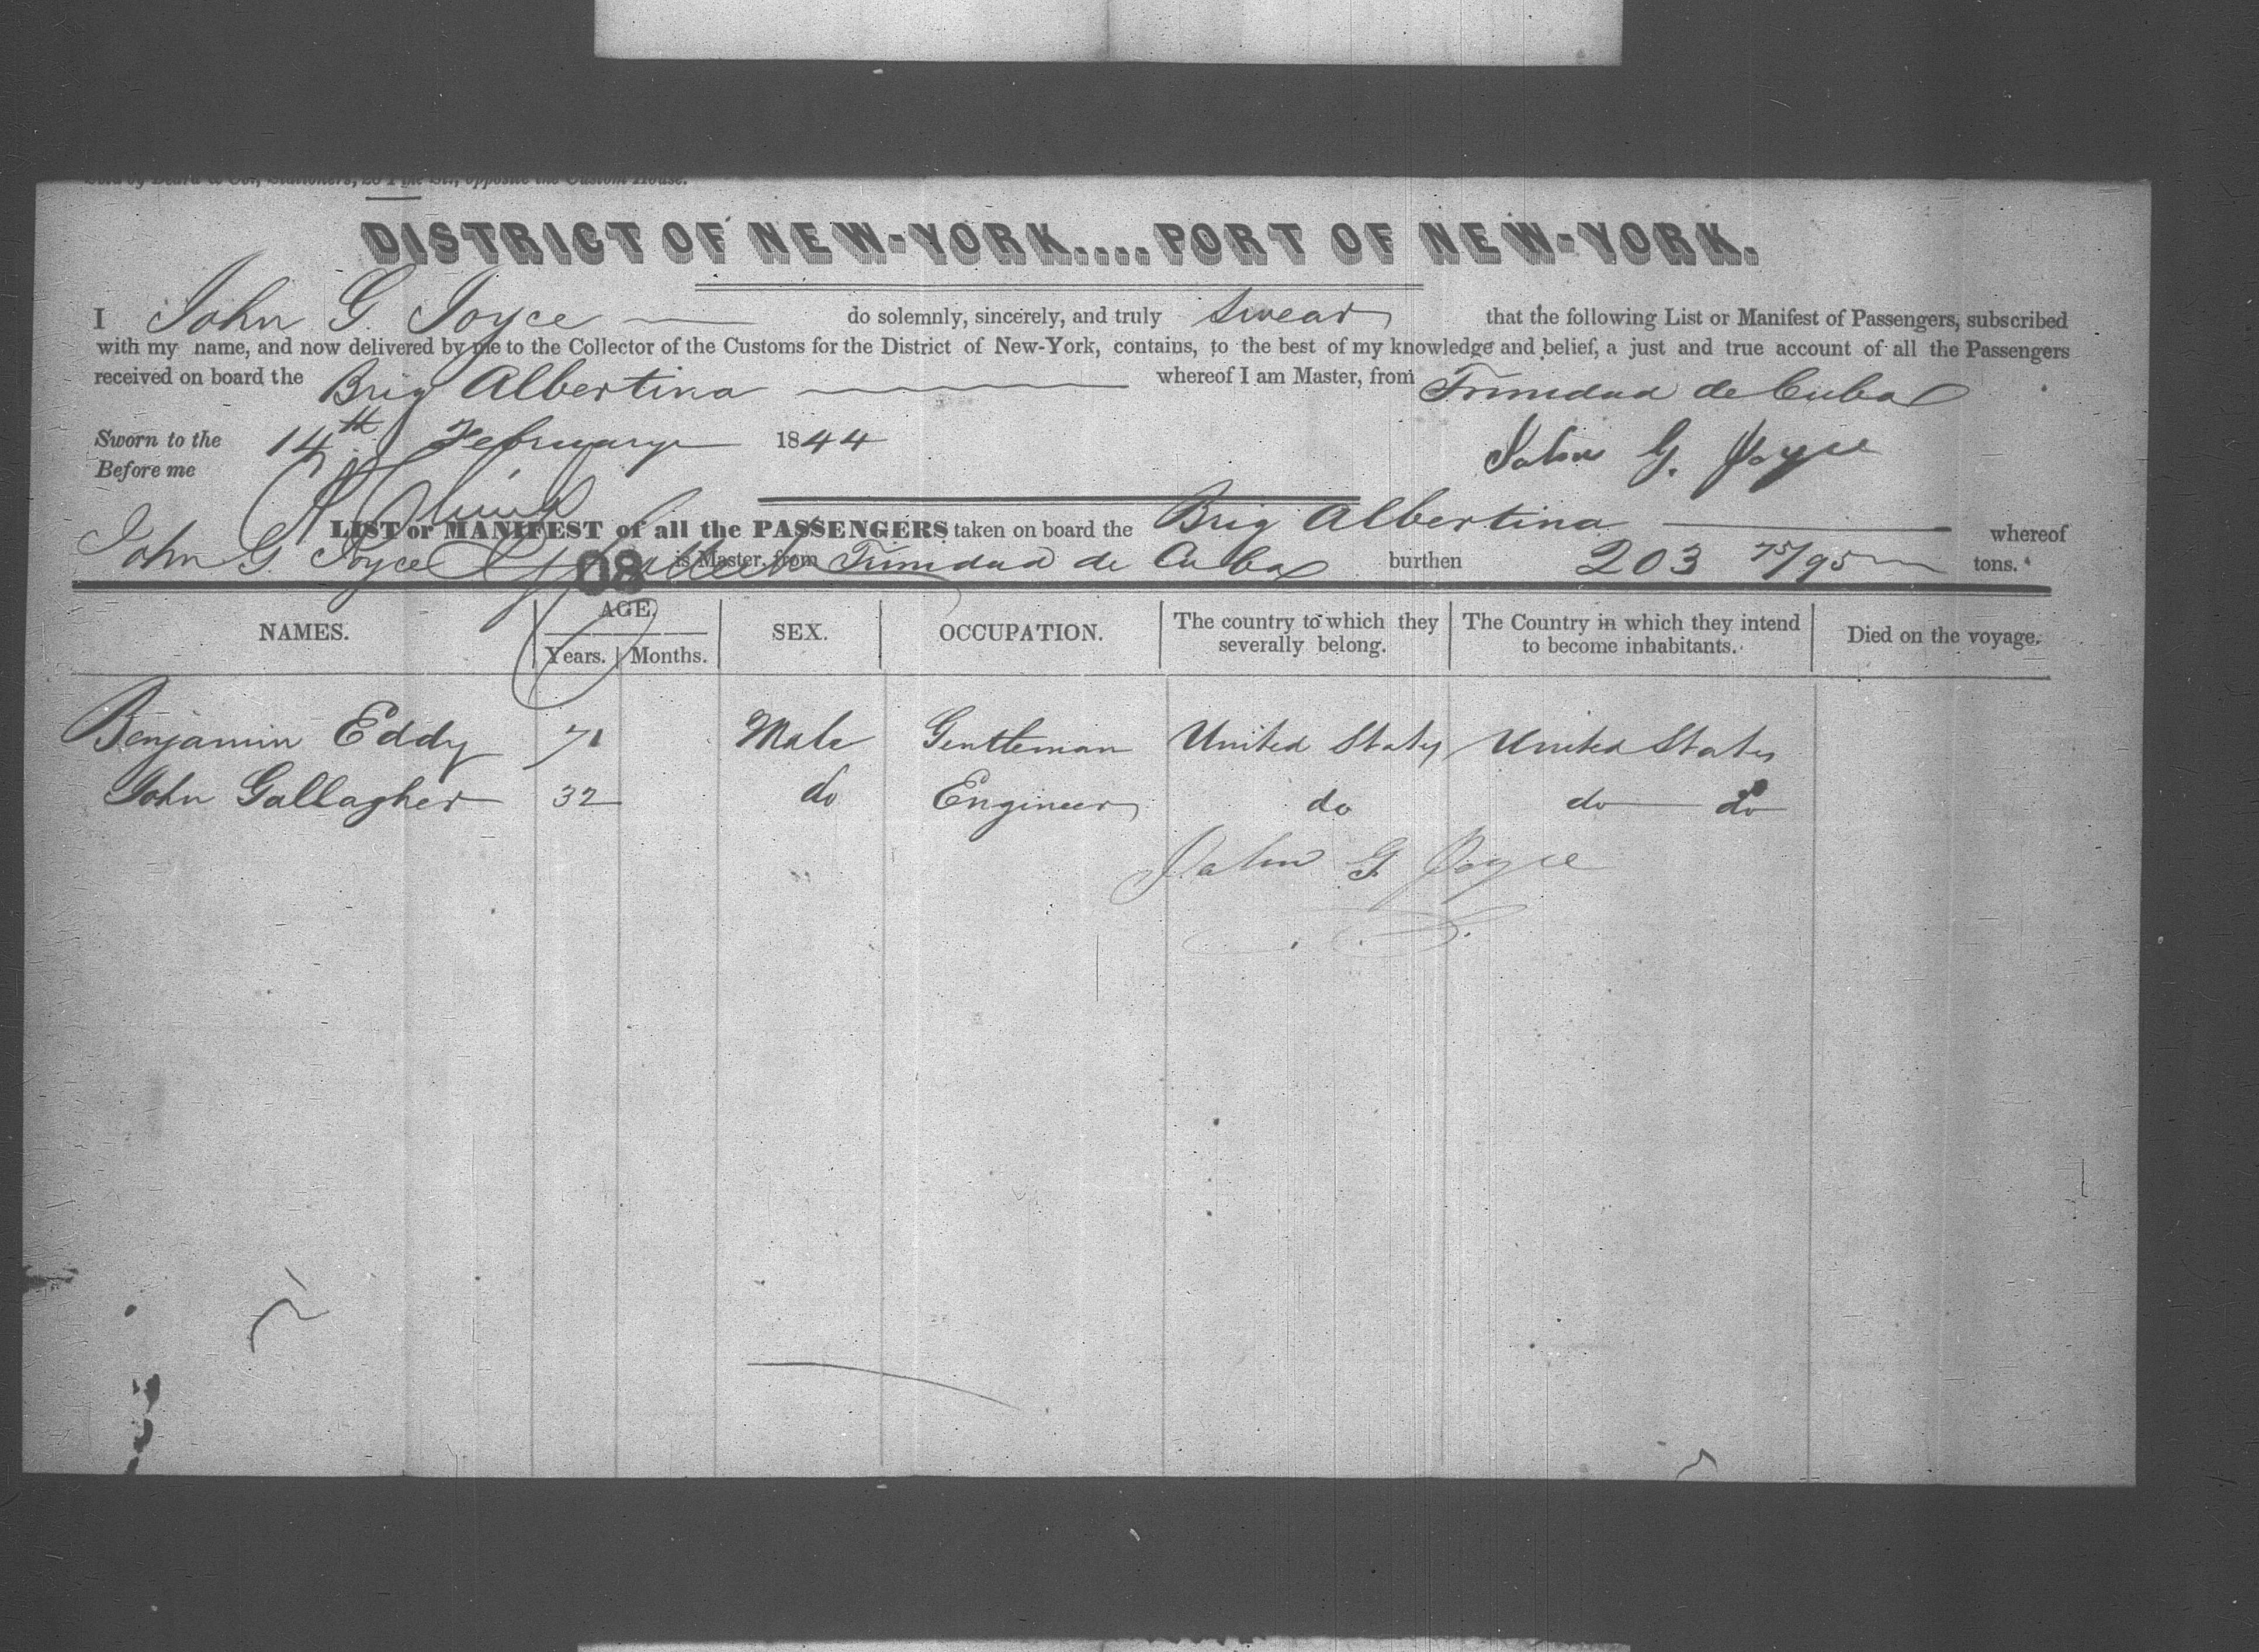 Sold by Beard & Co., Stationers, 28 Pine Str., opposite the Custom House.
DISTRICT OF NEW-YORK....PORT OF NEW-YORK.
I John G. Joyce do solemnly, sincerely, and truly swear that the following List or Manifest of Passengers, subscribed
with my name, and now delivered by me to the Collector of the Customs for the District of New-York, contains, to the best of my knowledge and belief, a just and true account of all the Passengers
received on board the Brig Albertina whereof I am Master, from Trinidad de Cuba
Sworn to the 14th February 1844
Before me
John G. Joyce
LIST or MANIFEST of all the PASSENGERS taken on board the Brig Albertina whereof
John G. Joyce is Master, from Trinidad de Cuba burthen 203 75/95 tons.
08
NAMES. AGE. SEX. OCCUPATION. The country to which they severally belong. The Country in which they intend to become inhabitants. Died on the voyage.
Years. Months.
Benjamin Eddy 71 Male Gentleman United States United States
John Gallagher 32 do Engineer do do do
John G Joyce